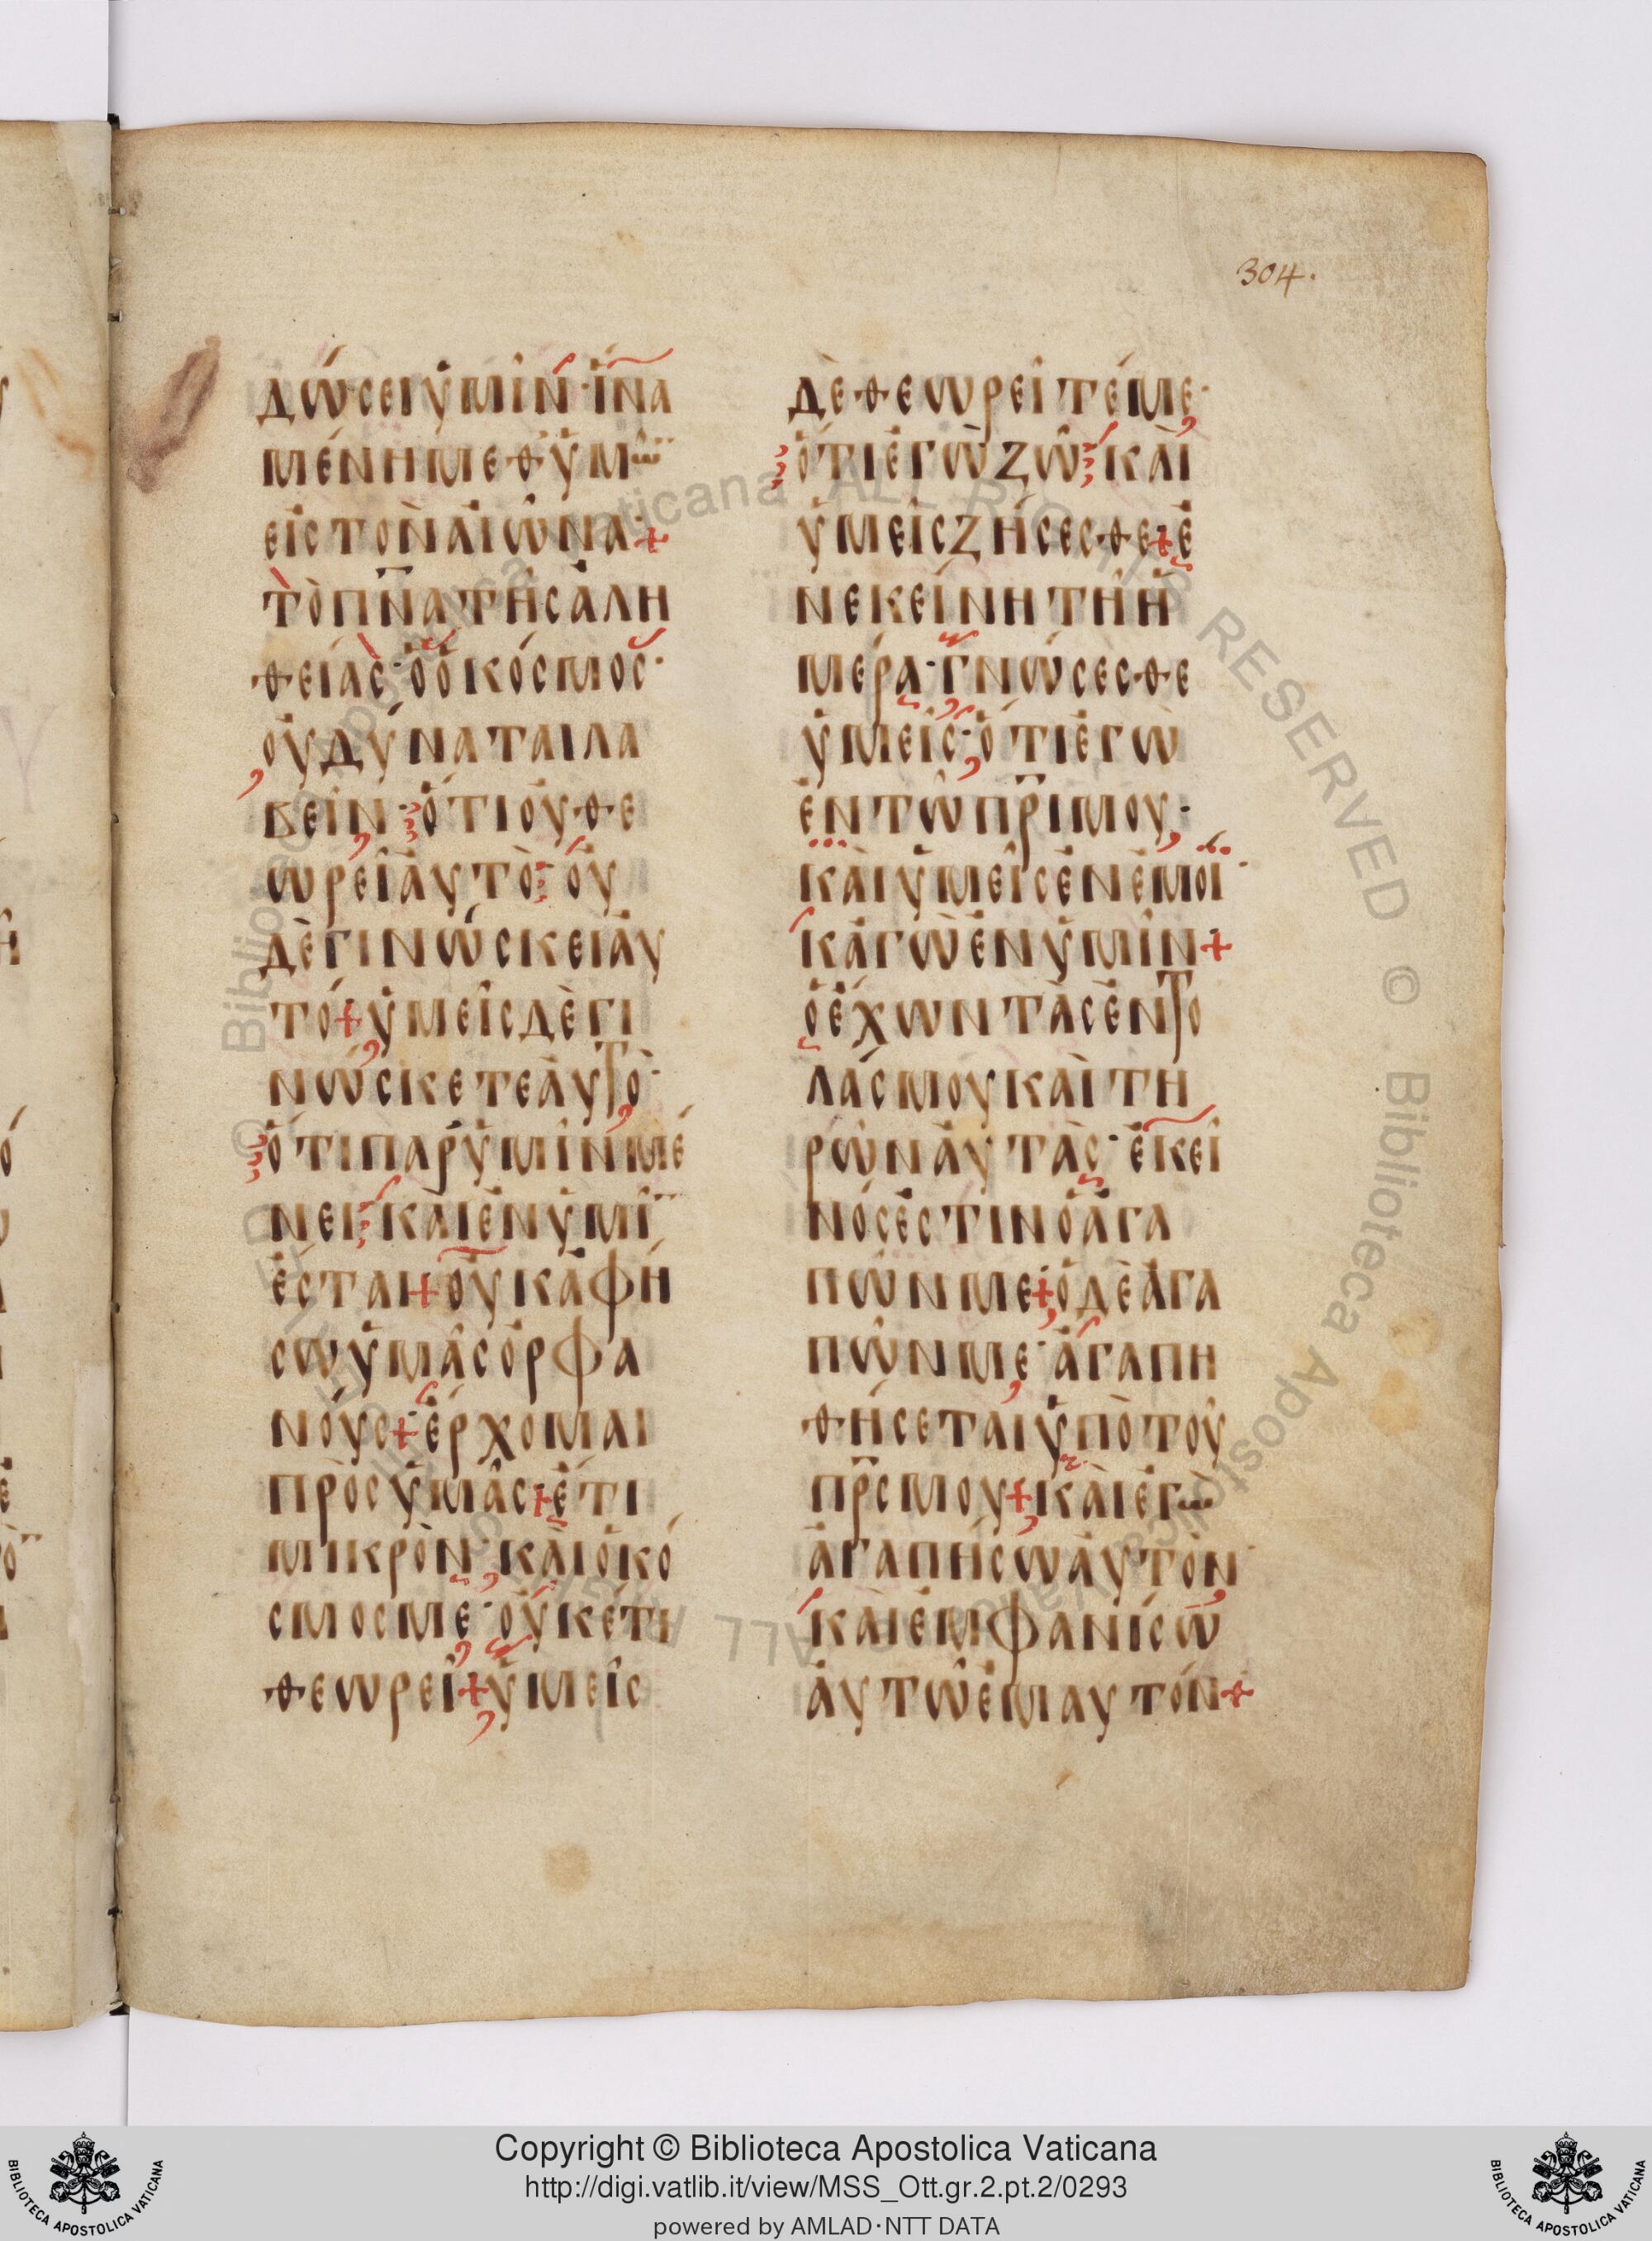 304.
δώσει ὑμῖν· ἵνα
μένῃ μεθ ὑμῶ
εἰς τὸν αἰῶνα +
τὸ πνα τῆς ἀλη
θείας· ὃ ὁ κόσμος·
οὐ δύναται λα
βεῖν· ὅτι οὐ θε
ωρεῖ ἀυτὸ· οὐ
δὲ γινώσκει ἀυ
τό + ὑμεῖς δὲ γι
νώσκετε ἀυτὸ·
ὅτι παρ ὑμῖν μέ
νει· καὶ ἐν ὑμῖ
ἔσται + οὐκ ἀφή
σω ὑμᾶς ὀρφα
νούς + ἔρχομαι
πρὸς ὑμᾶς + ἔτι
μικρὸν· καὶ ὁ κό
σμος με· οὐκέτι
θεωρεῖ + ὑμεῖς
δὲ θεωρεῖτέ με·
ὅτι ἐγὼ ζῶ· καὶ
ὑμεῖς ζήσεσθε + ἐ
ν ἐκείνῃ τῇ ἡ
μέρα· γνώσεσθε
ὑμεῖς· ὅτι ἐγὼ
ἐν τῶ πρι μου·
καὶ ὑμεῖς ἐν ἐμοί·
κἀγὼ ἐν ὑμῖν +
ὁ ἔχων τὰς ἐντο
λάς μου καὶ τη
ρῶν ἀυτὰς· ἐκεῖ
νός ἐστιν ὁ ἀγα
πῶν με + ὁ δὲ ἀγα
πῶν με· ἀγαπη
θήσεται ὑπὸ τοῦ
πρς μου + καὶ ἐγὼ
ἀγαπήσω ἀυτὸν·
καὶ ἐμφανίσω
ἀυτῶ ἐμαυτόν +
Copyright © Biblioteca Apostolica Vaticana
http://digi.vatlib.it/view/MSS_Ott.gr.2.pt.2/0293
powered by AMLAD·NTT DATA
BIBLIOTECA APOSTOLICA VATICANA
BIBLIOTECA APOSTOLICA VATICANA